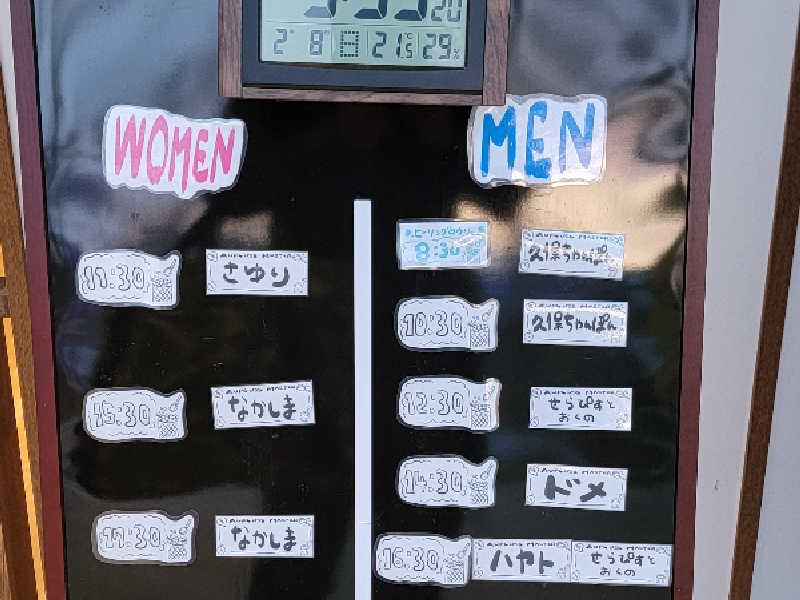 2 8 日 21.5℃ 29%
WOMEN
MEN
8:30
久保ちゃんぽん
11:30
さゆり
10:30
久保ちゃんぽん
15:30
なかしま
12:30
せらぴすと
おくの
14:30
ドメ
17:30
なかしま
16:30
ハヤト
せらぴすと
おくの